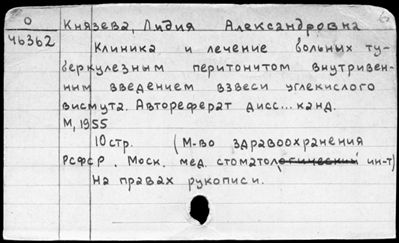 О
46362
Князева, Лидия Александровна
Клиника и лечение больных ту-
беркулезным перитонитом внутривен-
ным введением взвеси углекислого
висмута. Автореферат дисс... канд.
М, 1955
10стр. (М-во здравоохранения
РСФСР. Моск. мед. стоматологический ин-т)
На правах рукописи.